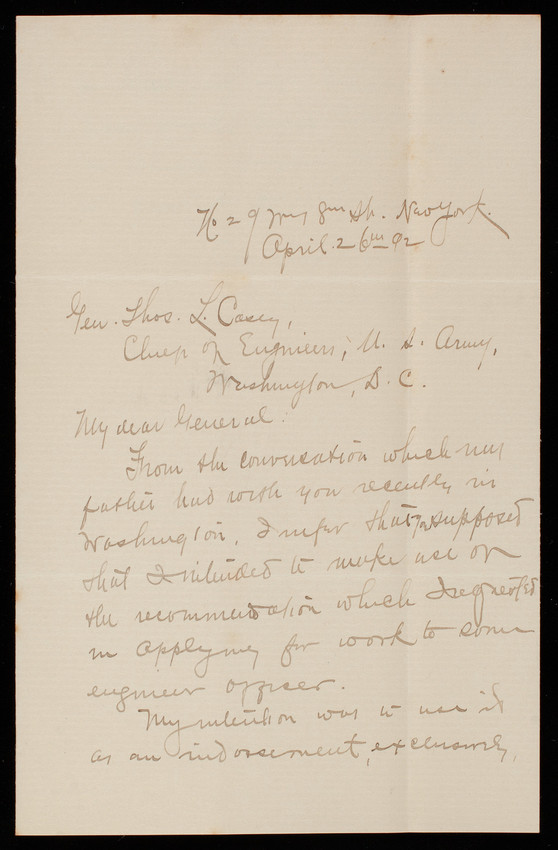 No 29 West 8th St. New York.
April 26th 92
Gen. Thos. L. Casey,
Chief of Engineers, U. S. Army,
Washington, D. C.
My dear General:
From the conversation which my
father had with you recently in
Washington, I infer that you supposed
that I intended to make use of
the recommendation which I requested
in applying for work to some
engineer officer.
My intention was to use it
as an indorsement, exclusively,